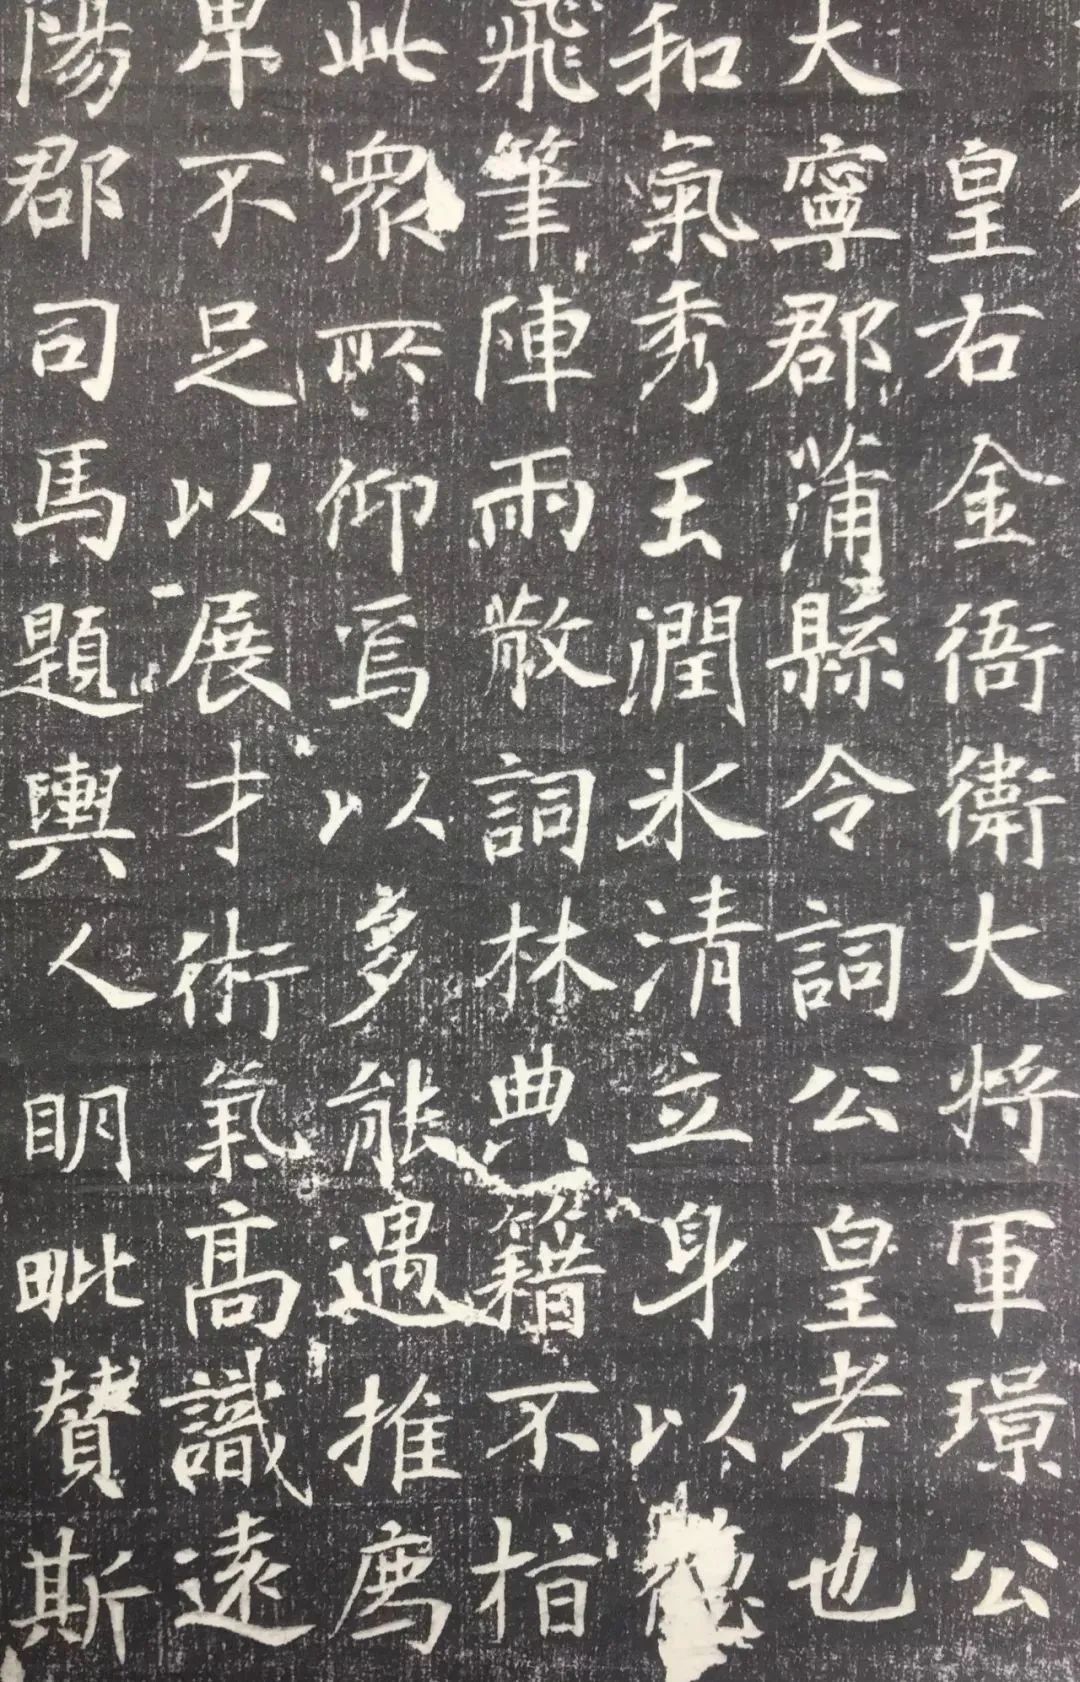 皇右金衙衛大将軍璟公
大寧郡蒲縣令詞公皇考也
和氣秀玉潤氷清立身以德
飛筆陣雨散詞林典籍不指
此衆所仰焉以多能遇推
卑不足以展才術氣高識遠
陽郡司馬題輿人明毗賛斯